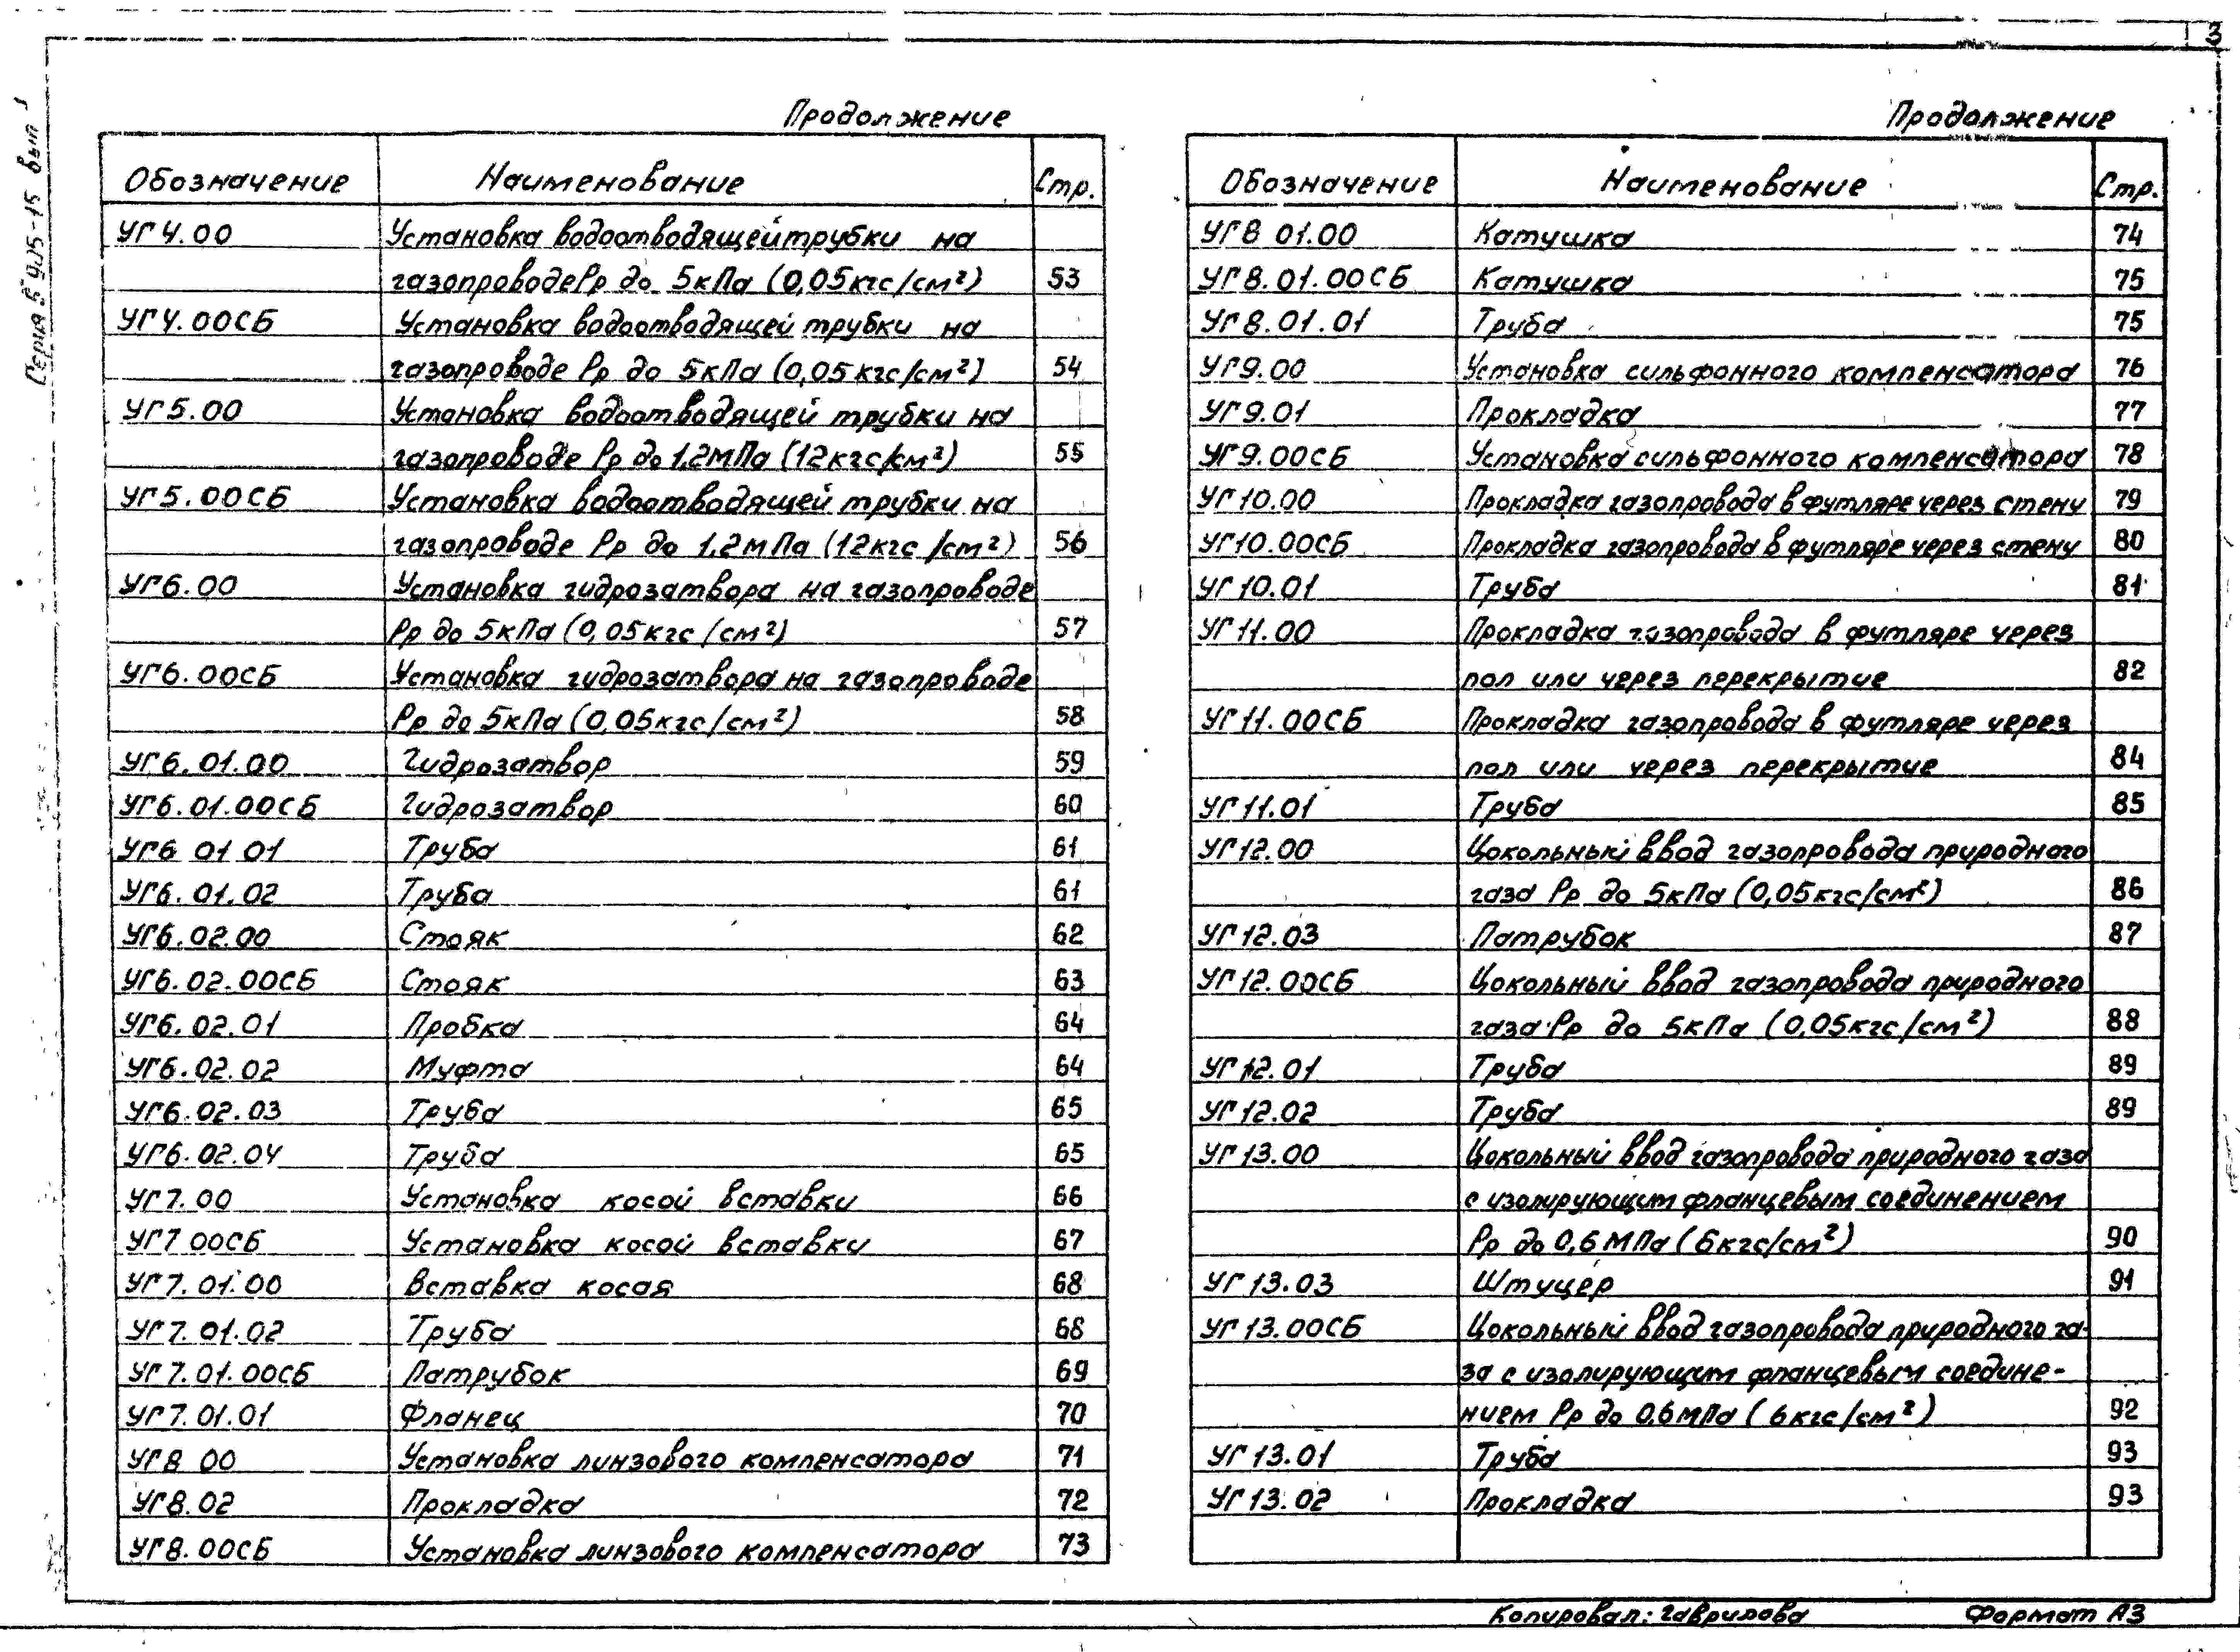 3
Серия 5.905-15 вып 1
Продолжение
Обозначение Наименование Стр.
УГ4.00 Установка водоотводящей трубки на
газопроводе Рр до 5кПа (0,05кгс/см²) 53
УГ4.00СБ Установка водоотводящей трубки на
газопроводе Рр до 5кПа (0,05кгс/см²) 54
УГ5.00 Установка водоотводящей трубки на
газопроводе Рр до 1,2МПа (12кгс/см²) 55
УГ5.00СБ Установка водоотводящей трубки на
газопроводе Рр до 1,2мПа (12кгс/см²) 56
УГ6.00 Установка гидрозатвора на газопроводе
Рр до 5кПа (0,05кгс/см²) 57
УГ6.00СБ Установка гидрозатвора на газопроводе
Рр до 5кПа (0,05кгс/см²) 58
УГ6.01.00 Гидрозатвор 59
УГ6.01.00СБ Гидрозатвор 60
УГ6 01 01 Труба 61
УГ6.01.02 Труба 61
УГ6.02.00 Стояк 62
УГ6.02.00СБ Стояк 63
УГ6.02.01 Пробка 64
УГ6.02.02 Муфта 64
УГ6.02.03 Труба 65
УГ6.02.04 Труба 65
УГ7.00 Установка косой вставки 66
УГ7 00СБ Установка косой вставки 67
УГ7.01.00 Вставка косая 68
УГ7.01.02 Труба 68
УГ7.01.00СБ Патрубок 69
УГ7.01.01 Фланец 70
УГ8 00 Установка линзового компенсатора 71
УГ8.02 Прокладка 72
УГ8.00СБ Установка линзового компенсатора 73
Продолжение
Обозначение Наименование Стр.
УГ8 01.00 Катушка 74
УГ8.01.00СБ Катушка 75
УГ8.01.01 Труба 75
УГ9.00 Установка сильфонного компенсатора 76
УГ9.01 Прокладка 77
УГ9.00СБ Установка сильфонного компенсатора 78
УГ10.00 Прокладка газопровода в футляре через стену 79
УГ10.00СБ Прокладка газопровода в футляре через стену 80
УГ10.01 Труба 81
УГ11.00 Прокладка газопровода в футляре через
пол или через перекрытие 82
УГ11.00СБ Прокладка газопровода в футляре через
пол или через перекрытие 84
УГ11.01 Труба 85
УГ12.00 Цокольный ввод газопровода природного
газа Рр до 5кПа (0,05кгс/см²) 86
УГ12.03 Патрубок 87
УГ12.00СБ Цокольный ввод газопровода природного
газа Рр до 5кПа (0,05кгс/см²) 88
УГ12.01 Труба 89
УГ12.02 Труба 89
УГ13.00 Цокольный ввод газопровода природного газа
с изолирующим фланцевым соединением
Рр до 0,6МПа (6кгс/см²) 90
УГ13.03 Штуцер 91
УГ13.00СБ Цокольный ввод газопровода природного га-
за с изолирующим фланцевым соедине-
нием Рр до 0.6МПа (6кгс/см²) 92
УГ13.01 Труба 93
УГ13.02 Прокладка 93
Копировал: Гаврилова Формат А3